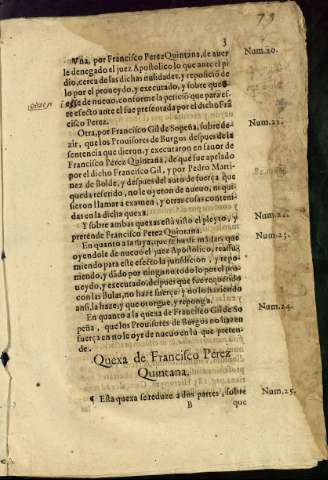 79
3
Vna, por Francisco Perez Quintana, de auer
le denegado el juez Apostolico lo que ante el pi
dio, cerca de las dichas nulidades, y reposicio de
lo por el proueydo, y executado, y sobre que
esse de nueuo, conforme la peticio que para es-
te efecto ante el fue presentada por el dicho Fra
cisco Perez.
Num.20.
Otra, por Francisco Gil de Sopeña, sobre de-
zir, que los Prouisores de Burgos despues de la
sentencia que dieron, y executaron en fauor de
Francisco Perez Quintana, de que fue apelado
por el dicho Francisco Gil, y por Pedro Marti-
nez de Bolde, y despues del auto de fuerça que
queda referido, no le oyeron de nueuo, ni qui-
sieron llamar a examen, y otras cosas conteni-
das en la dicha quexa.
Num.21.
Y sobre ambas quexas està visto el pleyto, y
pretende Francisco Perez Quintana.
Num.22.
En quanto a la suya, que se ha de mãdar, que
oyendole de nueuo el juez Apostolico, reassu-
miendo para este efecto la jurisdicion, y repo-
niendo, y dãdo por ninguno todo lo por el pro-
ueydo, y executado, despues que fue requerido
con las Bulas, no haze fuerça: y no lo haziendo
ansi, la haze, y que otorgue, y reponga.
Num.23.
En quanto a la quexa de Francisco Gil de So
peña, que los Prouisores de Burgos no hazen
fuerça en no le oyr de nueuo en la que preten-
de.
Num.24.
Quexa de Francisco Perez
Quintana.
¶ Esta quexa se reduze a dos partes, sobre
Num.25.
B que